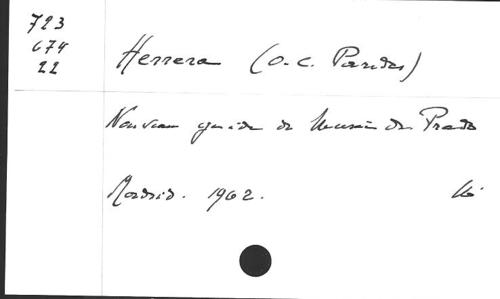 723
674
22
Herrera (O.C. Paredes)
Nouveau guide du Musée du Prado
Madrid. 1962.